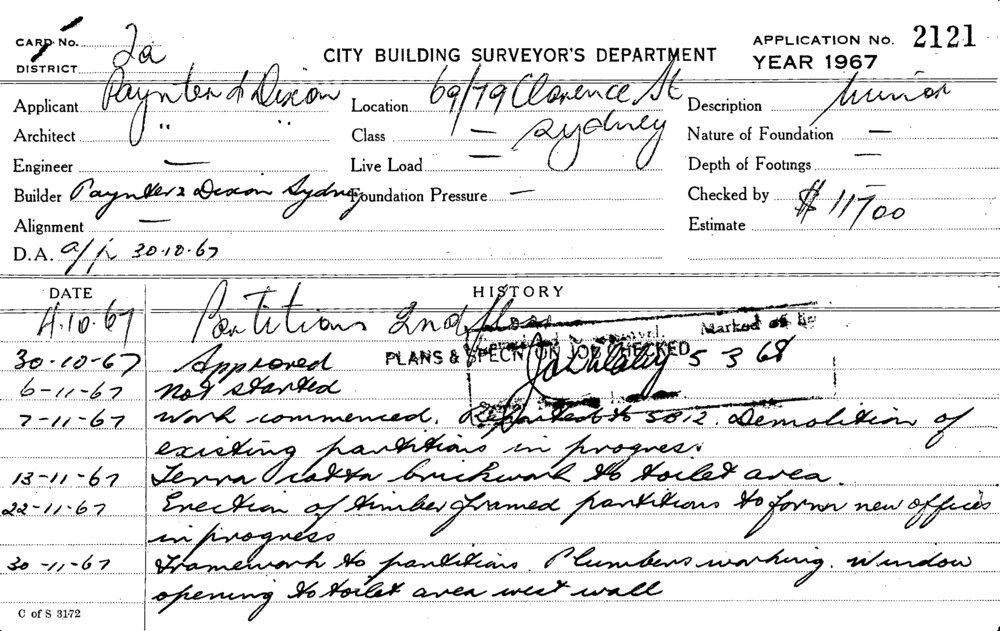 CARD No.
DISTRICT 2a
CITY BUILDING SURVEYOR'S DEPARTMENT
APPLICATION No. 2121
YEAR 1967
Applicant Paynter & Dixon
Location 69/79 Clarence St
Sydney
Description Minor
Architect " "
Class —
Nature of Foundation —
Engineer —
Live Load —
Depth of Footings —
Builder Paynter & Dixon Sydney
Foundation Pressure —
Checked by —
Alignment —
Estimate $ 11700
D.A. a/p 30.10.67
DATE HISTORY
4.10.67 Partitions 2nd floor
Marked off by
30-10-67 Approved
PLANS & SPECN ON JOB CHECKED 5 3 68
6-11-67 Not started
7-11-67 Work commenced. Reported to 5812. Demolition of
existing partitions in progress.
13-11-67 Terra cotta brickwork to toilet area.
22-11-67 Erection of timber framed partitions to form new offices
in progress
30-11-67 Framework to partitions. Plumbers working. Window
opening to toilet area west wall
C of S 3172